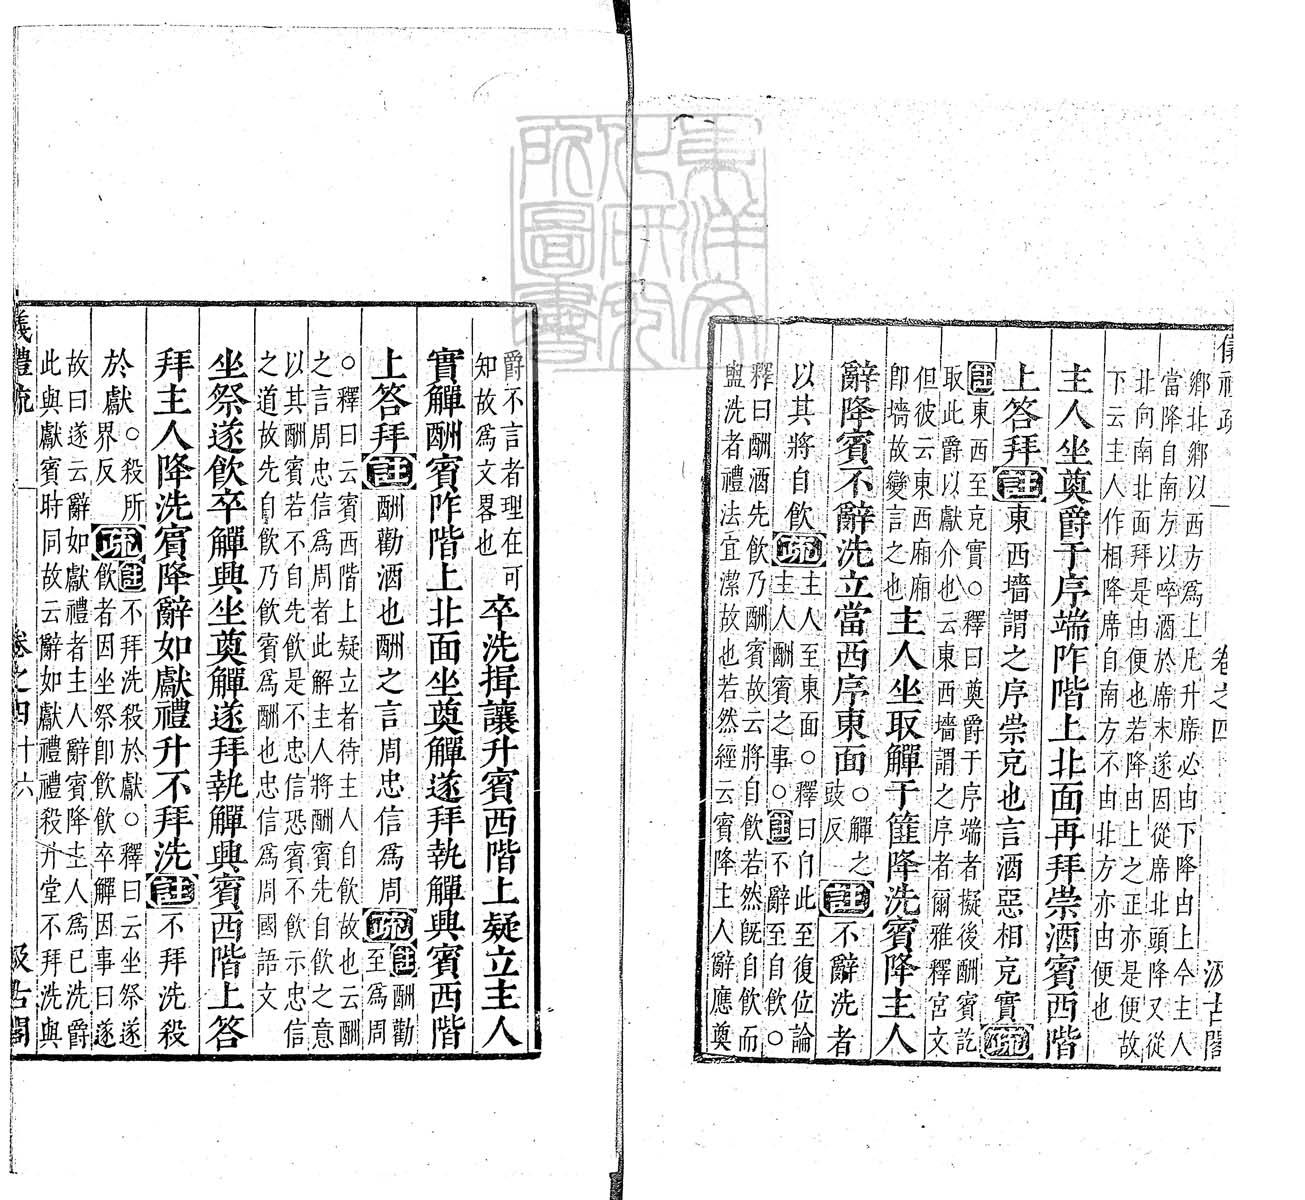 儀禮疏 卷之四 汲古閣
鄉北鄉以西方爲上凡升席必由下降由上今主人
當降自南方以啐酒於席末遂因從席北頭降又從
北向南北面拜是由便也若降由上之正亦是便故
下云主人作相降席自南方不由北方亦由便也
主人坐奠爵于序端阼階上北面再拜崇酒賓西階
上答拜註東西墻謂之序崇充也言酒惡相充實疏
註東西至充實○釋曰奠爵于序端者擬後酬賓訖
取此爵以獻介也云東西墻謂之序者爾雅釋宮文
但彼云東西廂廂
卽墻故變言之也
主人坐取觶于篚降洗賓降主人
辭降賓不辭洗立當西序東面
○觶之
豉反
註不辭洗者
以其將自飲疏
主人至東面○釋曰自此至復位論
主人酬賓之事○註不辭至自飲○
釋曰酬酒先飲乃酬賓故云將自飲若然旣自飲而
盥洗者禮法宜潔故也若然經云賓降主人辭應奠
爵不言者理在可
知故爲文畧也
卒洗揖讓升賓西階上疑立主人
實觶酬賓阼階上北面坐奠觶遂拜執觶興賓西階
上答拜註酬勸酒也酬之言周忠信爲周疏
註酬勸
至爲周
○釋曰云賓西階上疑立者待主人自飲故也云酬
之言周忠信爲周者此解主人將酬賓先自飲之意
以其酬賓若不自先飲是不忠信恐賓不飲示忠信
之道故先自飲乃飲賓爲酬也忠信爲周國語文
坐祭遂飲卒觶興坐奠觶遂拜執觶興賓西階上答
拜主人降洗賓降辭如獻禮升不拜洗註不拜洗殺
於獻
○殺所
界反
疏
註不拜洗殺於獻○釋曰云坐祭遂
飲者因坐祭卽飲飲卒觶因事曰遂
故曰遂云辭如獻禮者主人辭賓降主人爲己洗爵
此與獻賓時同故云辭如獻禮禮殺升堂不拜洗與
儀禮疏 卷之四 十六 汲古閣